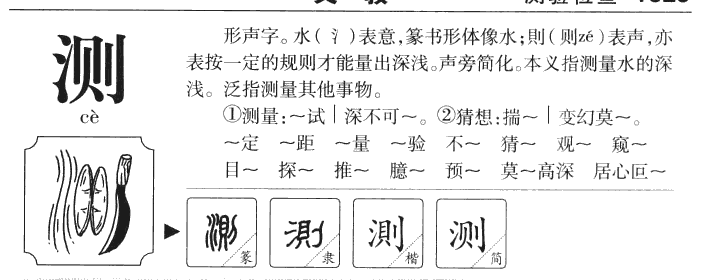 测
cè
形声字。水(氵)表意,篆书形体像水;則(则zé)表声,亦
表按一定的规则才能量出深浅。声旁简化。本义指测量水的深
浅。泛指测量其他事物。
①测量:~试│深不可~。②猜想:揣~│变幻莫~。
~定 ~距 ~量 ~验 不~ 猜~ 观~ 窥~
目~ 探~ 推~ 臆~ 预~ 莫~高深 居心叵~
測 篆 測 隶 測 楷 测 简